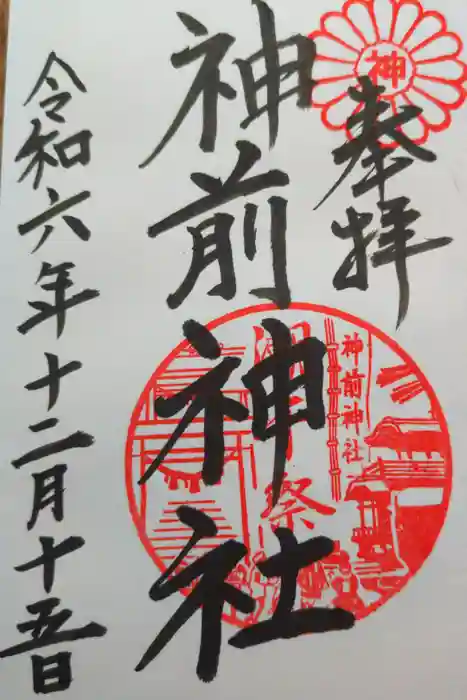 奉拝
神
神前神社
神前神社
祭
令和六年十二月十五日